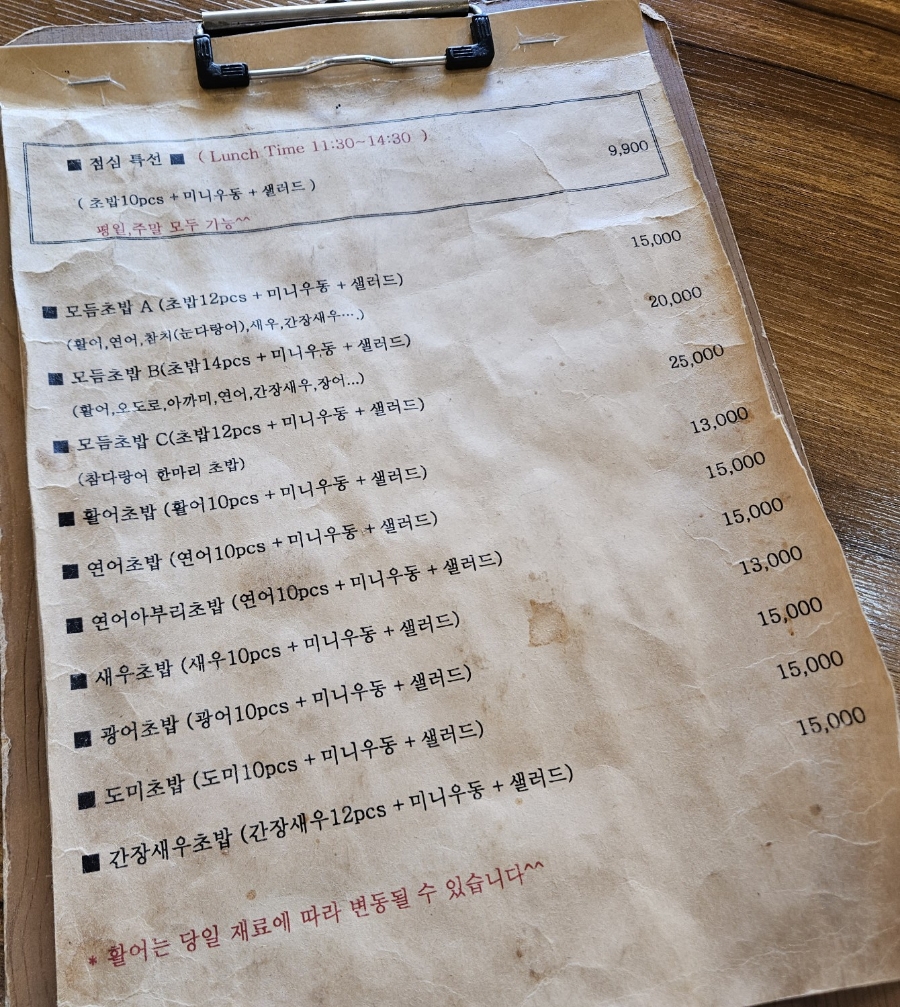 ■ 점심 특선 ■ ( Lunch Time 11:30~14:30 )
( 초밥10pcs + 미니우동 + 샐러드 ) 9,900
평일,주말 모두 가능^^
■ 모듬초밥 A (초밥12pcs + 미니우동 + 샐러드) 15,000
(활어,연어,참치(눈다랑어),새우,간장새우….)
■ 모듬초밥 B(초밥14pcs + 미니우동 + 샐러드) 20,000
(활어,오도로,아까미,연어,간장새우,장어...)
■ 모듬초밥 C(초밥12pcs + 미니우동 + 샐러드) 25,000
(참다랑어 한마리 초밥)
■ 활어초밥 (활어10pcs + 미니우동 + 샐러드) 13,000
■ 연어초밥 (연어10pcs + 미니우동 + 샐러드) 15,000
■ 연어아부리초밥 (연어10pcs + 미니우동 + 샐러드) 15,000
■ 새우초밥 (새우10pcs + 미니우동 + 샐러드) 13,000
■ 광어초밥 (광어10pcs + 미니우동 + 샐러드) 15,000
■ 도미초밥 (도미10pcs + 미니우동 + 샐러드) 15,000
■ 간장새우초밥 (간장새우12pcs + 미니우동 + 샐러드) 15,000
* 활어는 당일 재료에 따라 변동될 수 있습니다^^